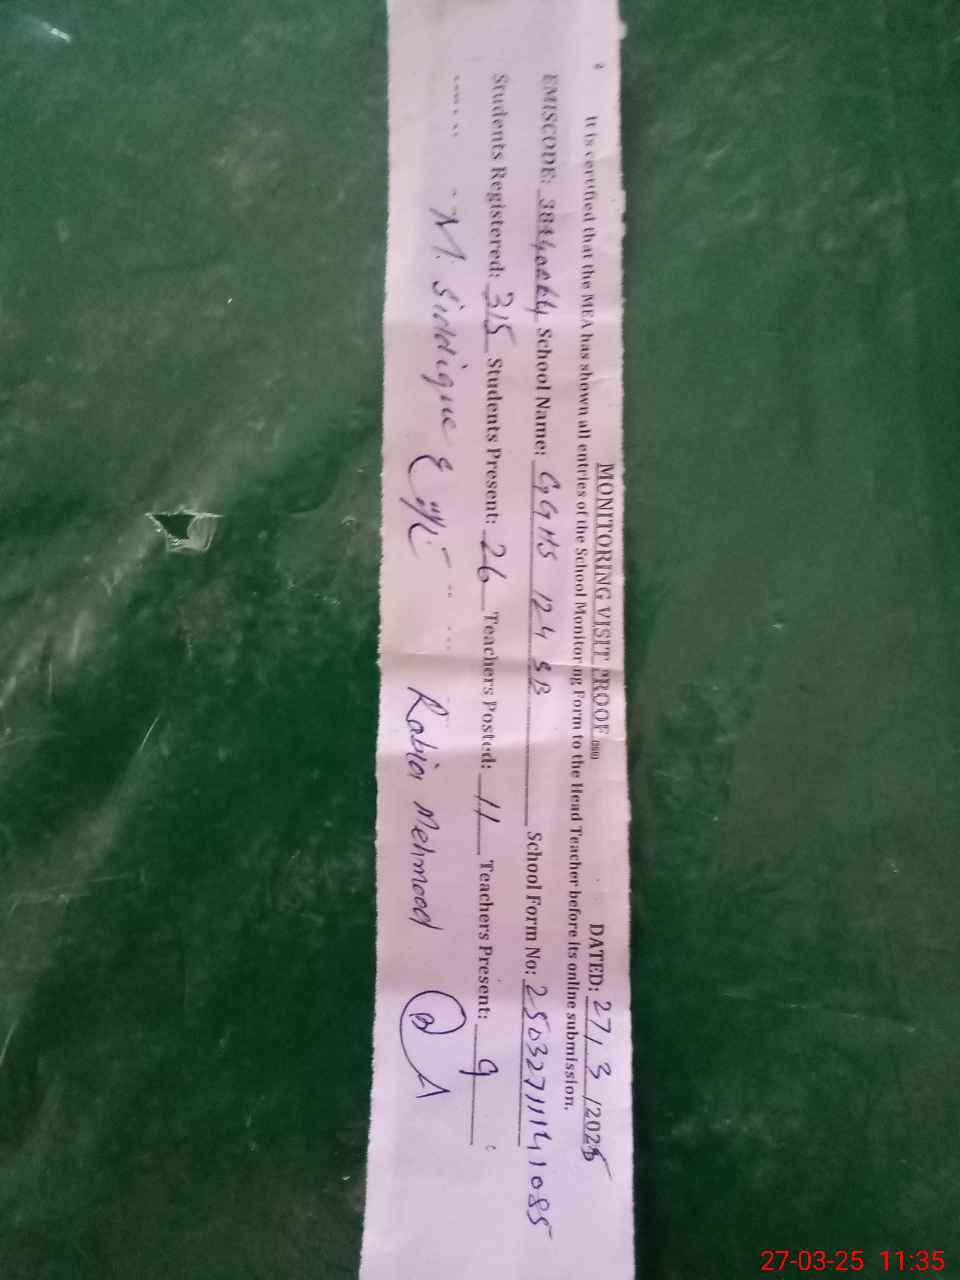 MONITORING VISIT PROOF DATED: 27/3/2025
It is certified that the MEA has shown all entries of the School Monitoring Form to the Head Teacher before its online submission.
EMISCODE: School Name: GGHS 124 SB School Form No: 25032711141085
Students Registered: 315 Students Present: 26 Teachers Posted: 11 Teachers Present: 9
M. Siddique Rabia Mehmood
27-03-25 11:35